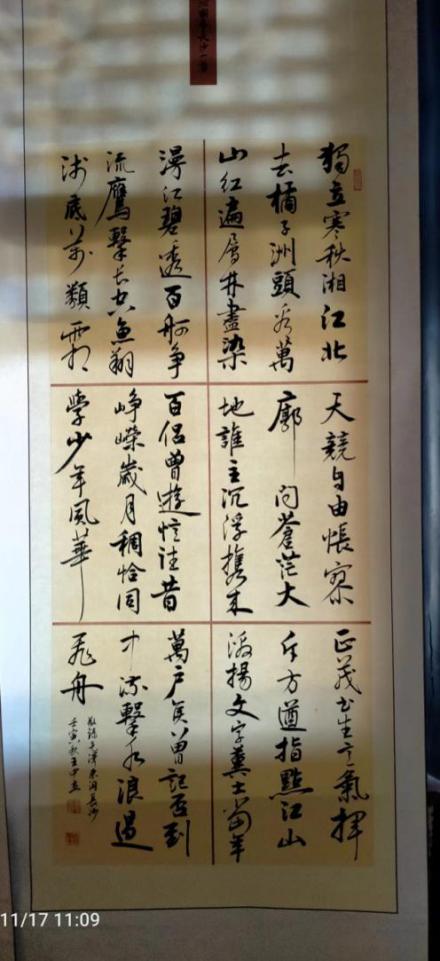 獨立寒秋湘江北
去橘子洲頭看萬
山紅遍層林盡染
漫江碧透百舸争
流鷹擊長空魚翔
浅底萬類霜
天競自由悵寥
廓问蒼茫大
地誰主沉浮携來
百侣曾遊憶往昔
峥嵘歲月稠恰同
學少年風華
正茂书生意氣揮
斥方遒指點江山
激揚文字糞土當年
萬户矦曾記否到
中流擊水浪遏
飛舟
毛澤東词長沙
壬寅秋王中立
11/17 11:09